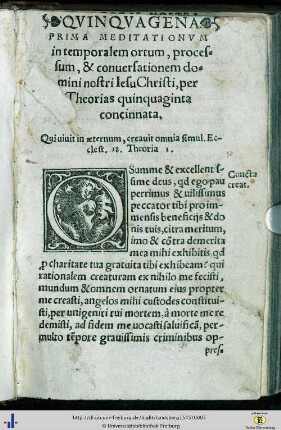 QVINQVAGENA
PRIMA MEDITATIONVM
in temporalem ortum, proces-
sum, & conuersationem do-
mini nostri Iesu Christi, per
Theorias quinquaginta
concinnata.
Qui uiuit in æternum, creauit omnia simul. Ec-
clest. 18. Theoria 1.
Cuncta
creat.
O Summe & excellentis-
sime deus, qd ego pau
perrimus & uilissimus
peccator tibi pro im-
mensis beneficijs & do
nis tuis, citra meritum,
imo & cōtra demerita
mea mihi exhibitis, qd
ꝓ charitate tua gratuita tibi exhibeam? qui
rationalem creaturam ex nihilo me fecisti,
mundum & omnem ornatum eius propter
me creasti, angelos mihi custodes constitui-
sti, per unigeniti tui mortem, à morte me re
demisti, ad fidem me uocasti saluificā, per-
multo tēpore grauissimis criminibus op-
pres-
© Universitätsbibliothek Freiburg